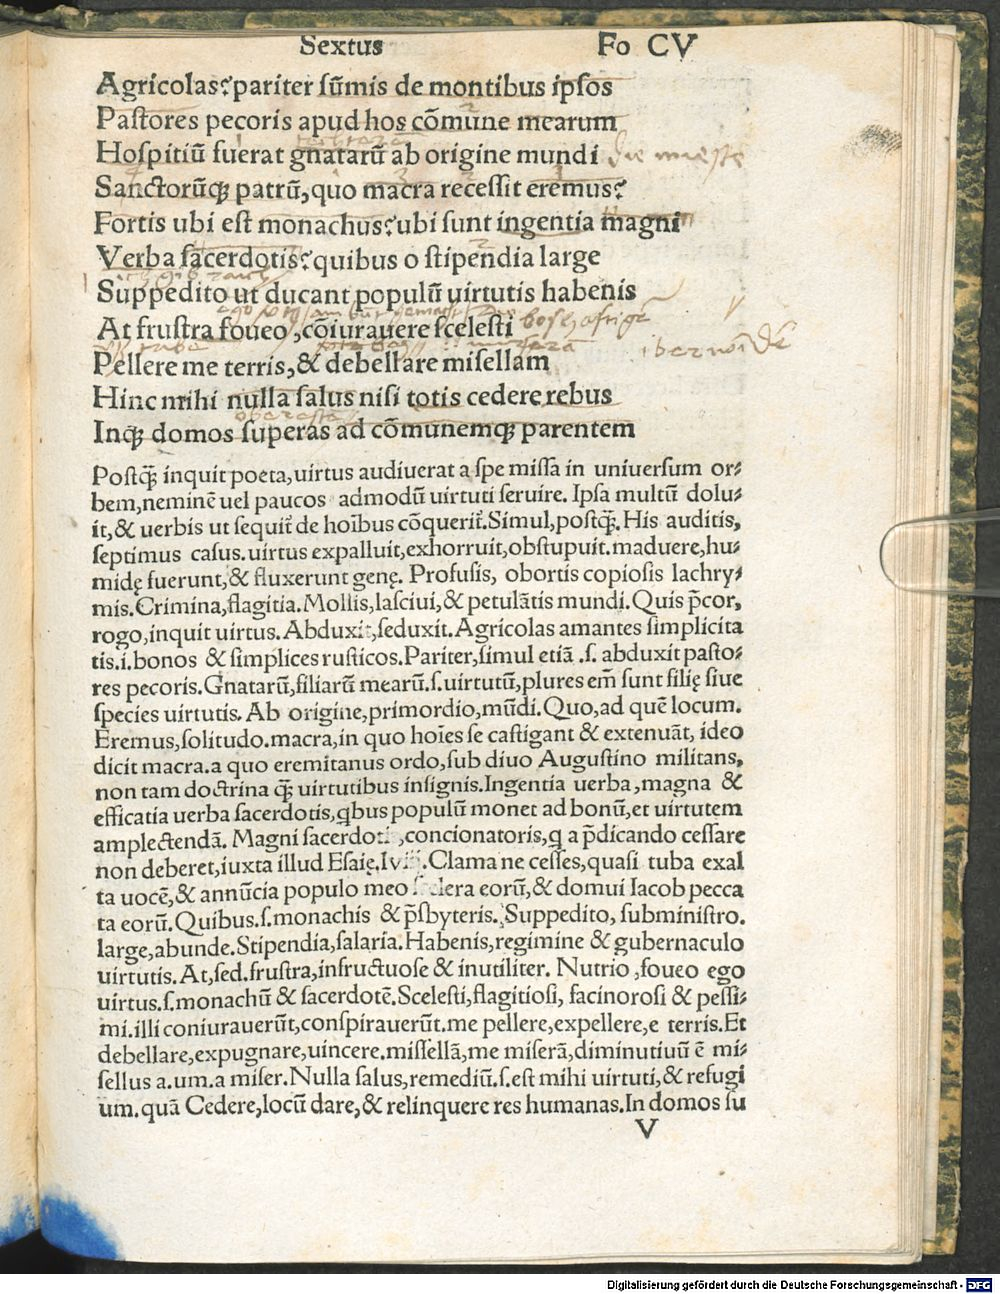 Sextus Fo CV
Agricolas?pariter sūmis de montibus ipsos
Pastores pecoris apud hos cōmune mearum
Hospitiū fuerat gnatarū ab origine mundi
Sanctorūqꝫ patrū,quo macra recessit eremus?
Fortis ubi est monachus?ubi sunt ingentia magni
Verba sacerdotis?quibus o stipendia large
Suppedito ut ducant populū uirtutis habenis
At frustra foueo ,cōiurauere scelesti
Pellere me terris,& debellare misellam
Hinc mihi nulla salus nisi totis cedere rebus
Inqꝫ domos superas ad cōmunemqꝫ parentem
Postqꝫ̄ inquit poeta,uirtus audiuerat a spe missa in uniuersum or⸗
bem,neminē uel paucos admodū uirtuti seruire. Ipsa multū dolu⸗
it,& uerbis ut sequit̄ de hoībus cōquerit̄.Simul,postqꝫ̄. His auditis,
septimus casus.uirtus expalluit,exhorruit,obstupuit.maduere,hu⸗
midę fuerunt,& fluxerunt genę. Profusis, obortis copiosis lachry⸗
mis.Crimina,flagitia.Mollis,lasciui,& petulātis mundi.Quis p̄cor,
rogo,inquit uirtus.Abduxit,seduxit.Agricolas amantes simplicita
tis.i.bonos & simplices rusticos.Pariter,simul etiā .s. abduxit pasto⸗
res pecoris.Gnatarū,filiarū mearū.s.uirtutū,plures em̄ sunt filię siue
species uirtutis. Ab origine,primordio,mūdi.Quo,ad quē locum.
Eremus,solitudo.macra,in quo hoīes se castigant & extenuāt, ideo
dicit macra.a quo eremitanus ordo,sub diuo Augustino militans,
non tam doctrina qꝫ̄ uirtutibus insignis.Ingentia uerba,magna &
efficatia uerba sacerdotis,qbus populū monet ad bonū,et uirtutem
amplectendā. Magni sacerdotis,concionatoris,q a p̄dicando cessare
non deberet,iuxta illud Esaię.lviij.Clama ne cesses,quasi tuba exal
ta uocē,& annūcia populo meo scelera eorū,& domui Iacob pecca
ta eorū.Quibus.s.monachis & p̄sbyteris. Suppedito, subministro.
large,abunde.Stipendia,salaria.Habenis,regimine & gubernaculo
uirtutis.At,sed.frustra,infructuose & inutiliter. Nutrio ,foueo ego
uirtus.s.monachū & sacerdotē.Scelesti,flagitiosi, facinorosi & pessi⸗
mi.illi coniurauerūt,conspirauerūt.me pellere,expellere,e terris.Et
debellare,expugnare,uincere.missellā,me miserā,diminutiuū ē mi⸗
sellus a.um.a miser.Nulla salus,remediū.s.est mihi uirtuti,& refugi
um.quā Cedere,locū dare,& relinquere res humanas.In domos su
V
Digitalisierung gefördert durch die Deutsche Forschungsgemeinschaft - DFG